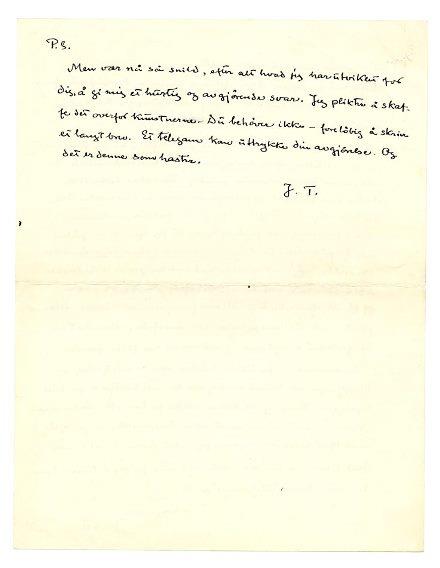 P.S.
Men vær nå så snild, efter alt hvad jeg har utviklet for
dig, å gi mig et hurtig og avgjørende svar. Jeg plikter å skaf-
fe det overfor kunstnerne. Du behøver ikke – foreløbig å skrive
et langt brev. Et telegram kan uttrykke din avgjørelse. Og
det er denne som haster.
J. T.